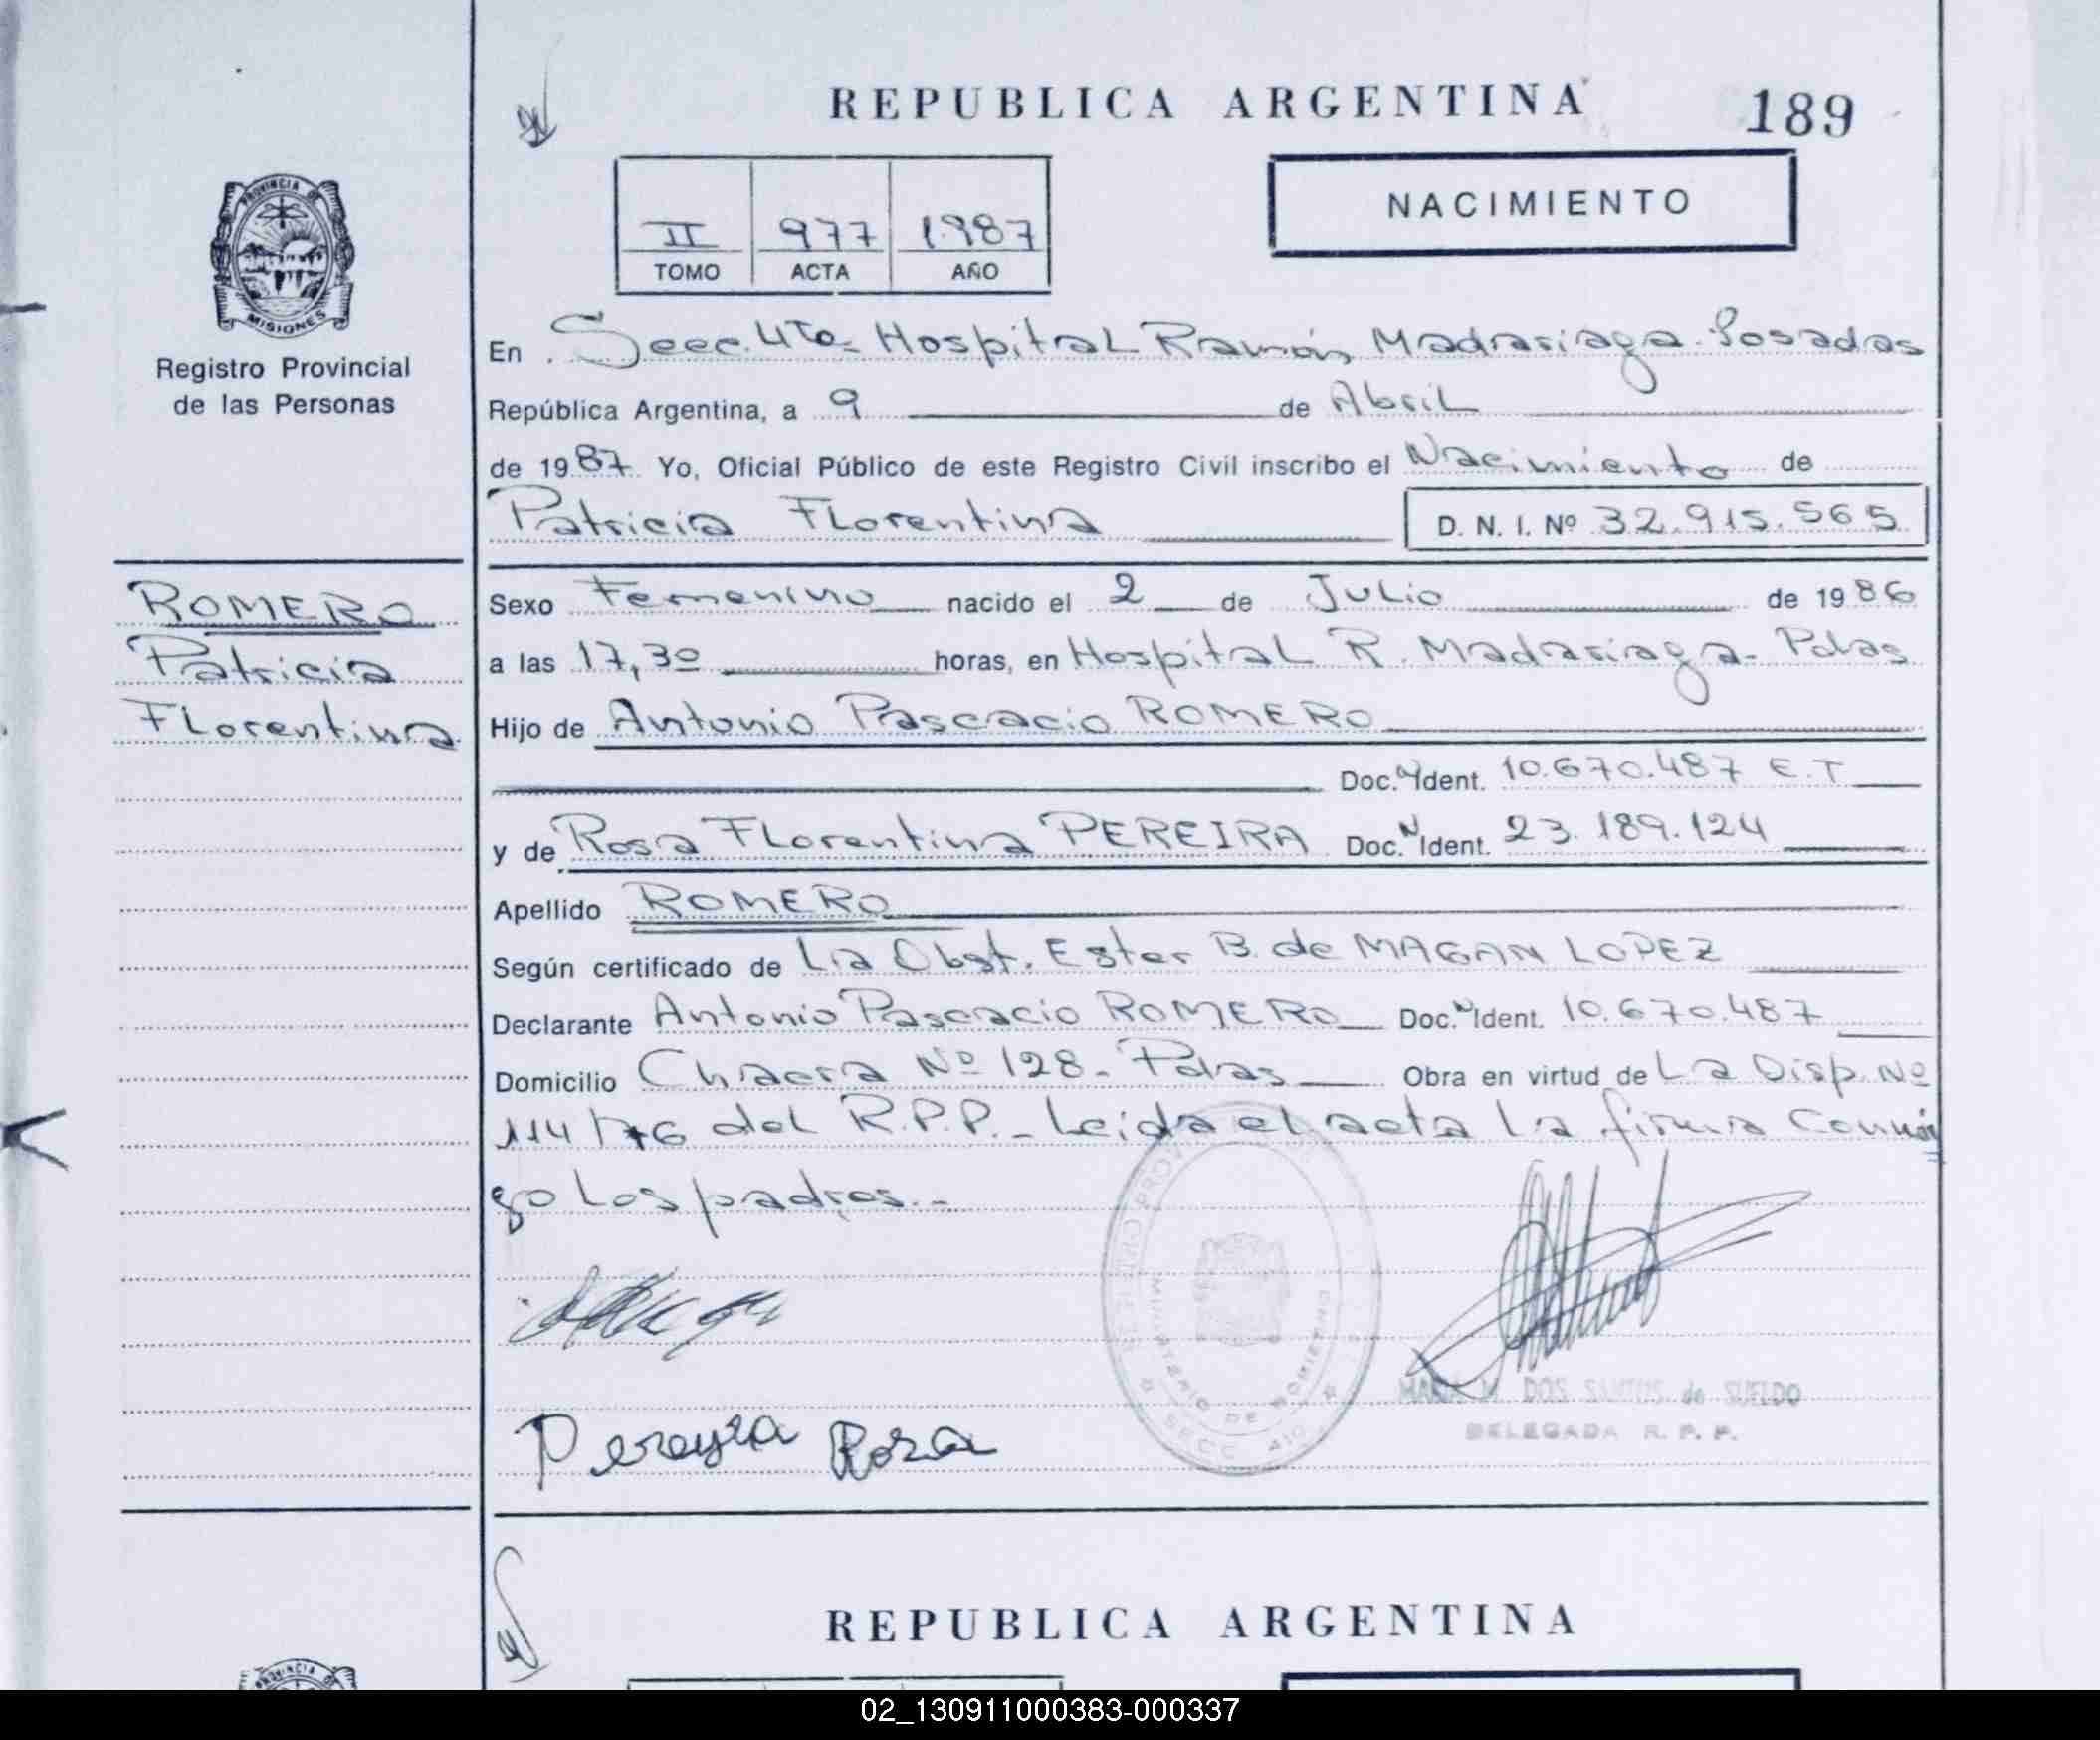 REPUBLICA ARGENTINA
189
NACIMIENTO
II 977 1987
TOMO ACTA AÑO
PROVINCIA DE
MISIONES
Registro Provincial
de las Personas
En Secc. 4ta. Hospital Ramón Madariaga. Posadas
República Argentina, a 9 de Abril
de 1987 Yo, Oficial Público de este Registro Civil inscribo el Nacimiento de
Patricia Florentina D. N. I. Nº 32.915.565
ROMERO
Patricia
Florentina
Sexo Femenino nacido el 2 de Julio de 1986
a las 17,30 horas, en Hospital R. Madariaga- Pdas
Hijo de Antonio Pascacio ROMERO
Doc. N Ident. 10.670.487 E.T
y de Rosa Florentina PEREIRA Doc. N Ident. 23.189.124
Apellido ROMERO
Según certificado de La Obst. Ester B. de MAGAN LOPEZ
Declarante Antonio Pascacio ROMERO Doc. N Ident. 10.670.487
Domicilio Chacra Nº 128- Pdas Obra en virtud de La Disp. Nº
114/76 del R.P.P.- Leida el acta La firma Conmi
go Los padres.-
MINISTERIO DE GOBIERNO
MARIA M. DOS SANTOS de SUELDO
DELEGADA R. P. P.
Pereyra Rosa
REPUBLICA ARGENTINA
PROVINCIA D
02_130911000383-000337